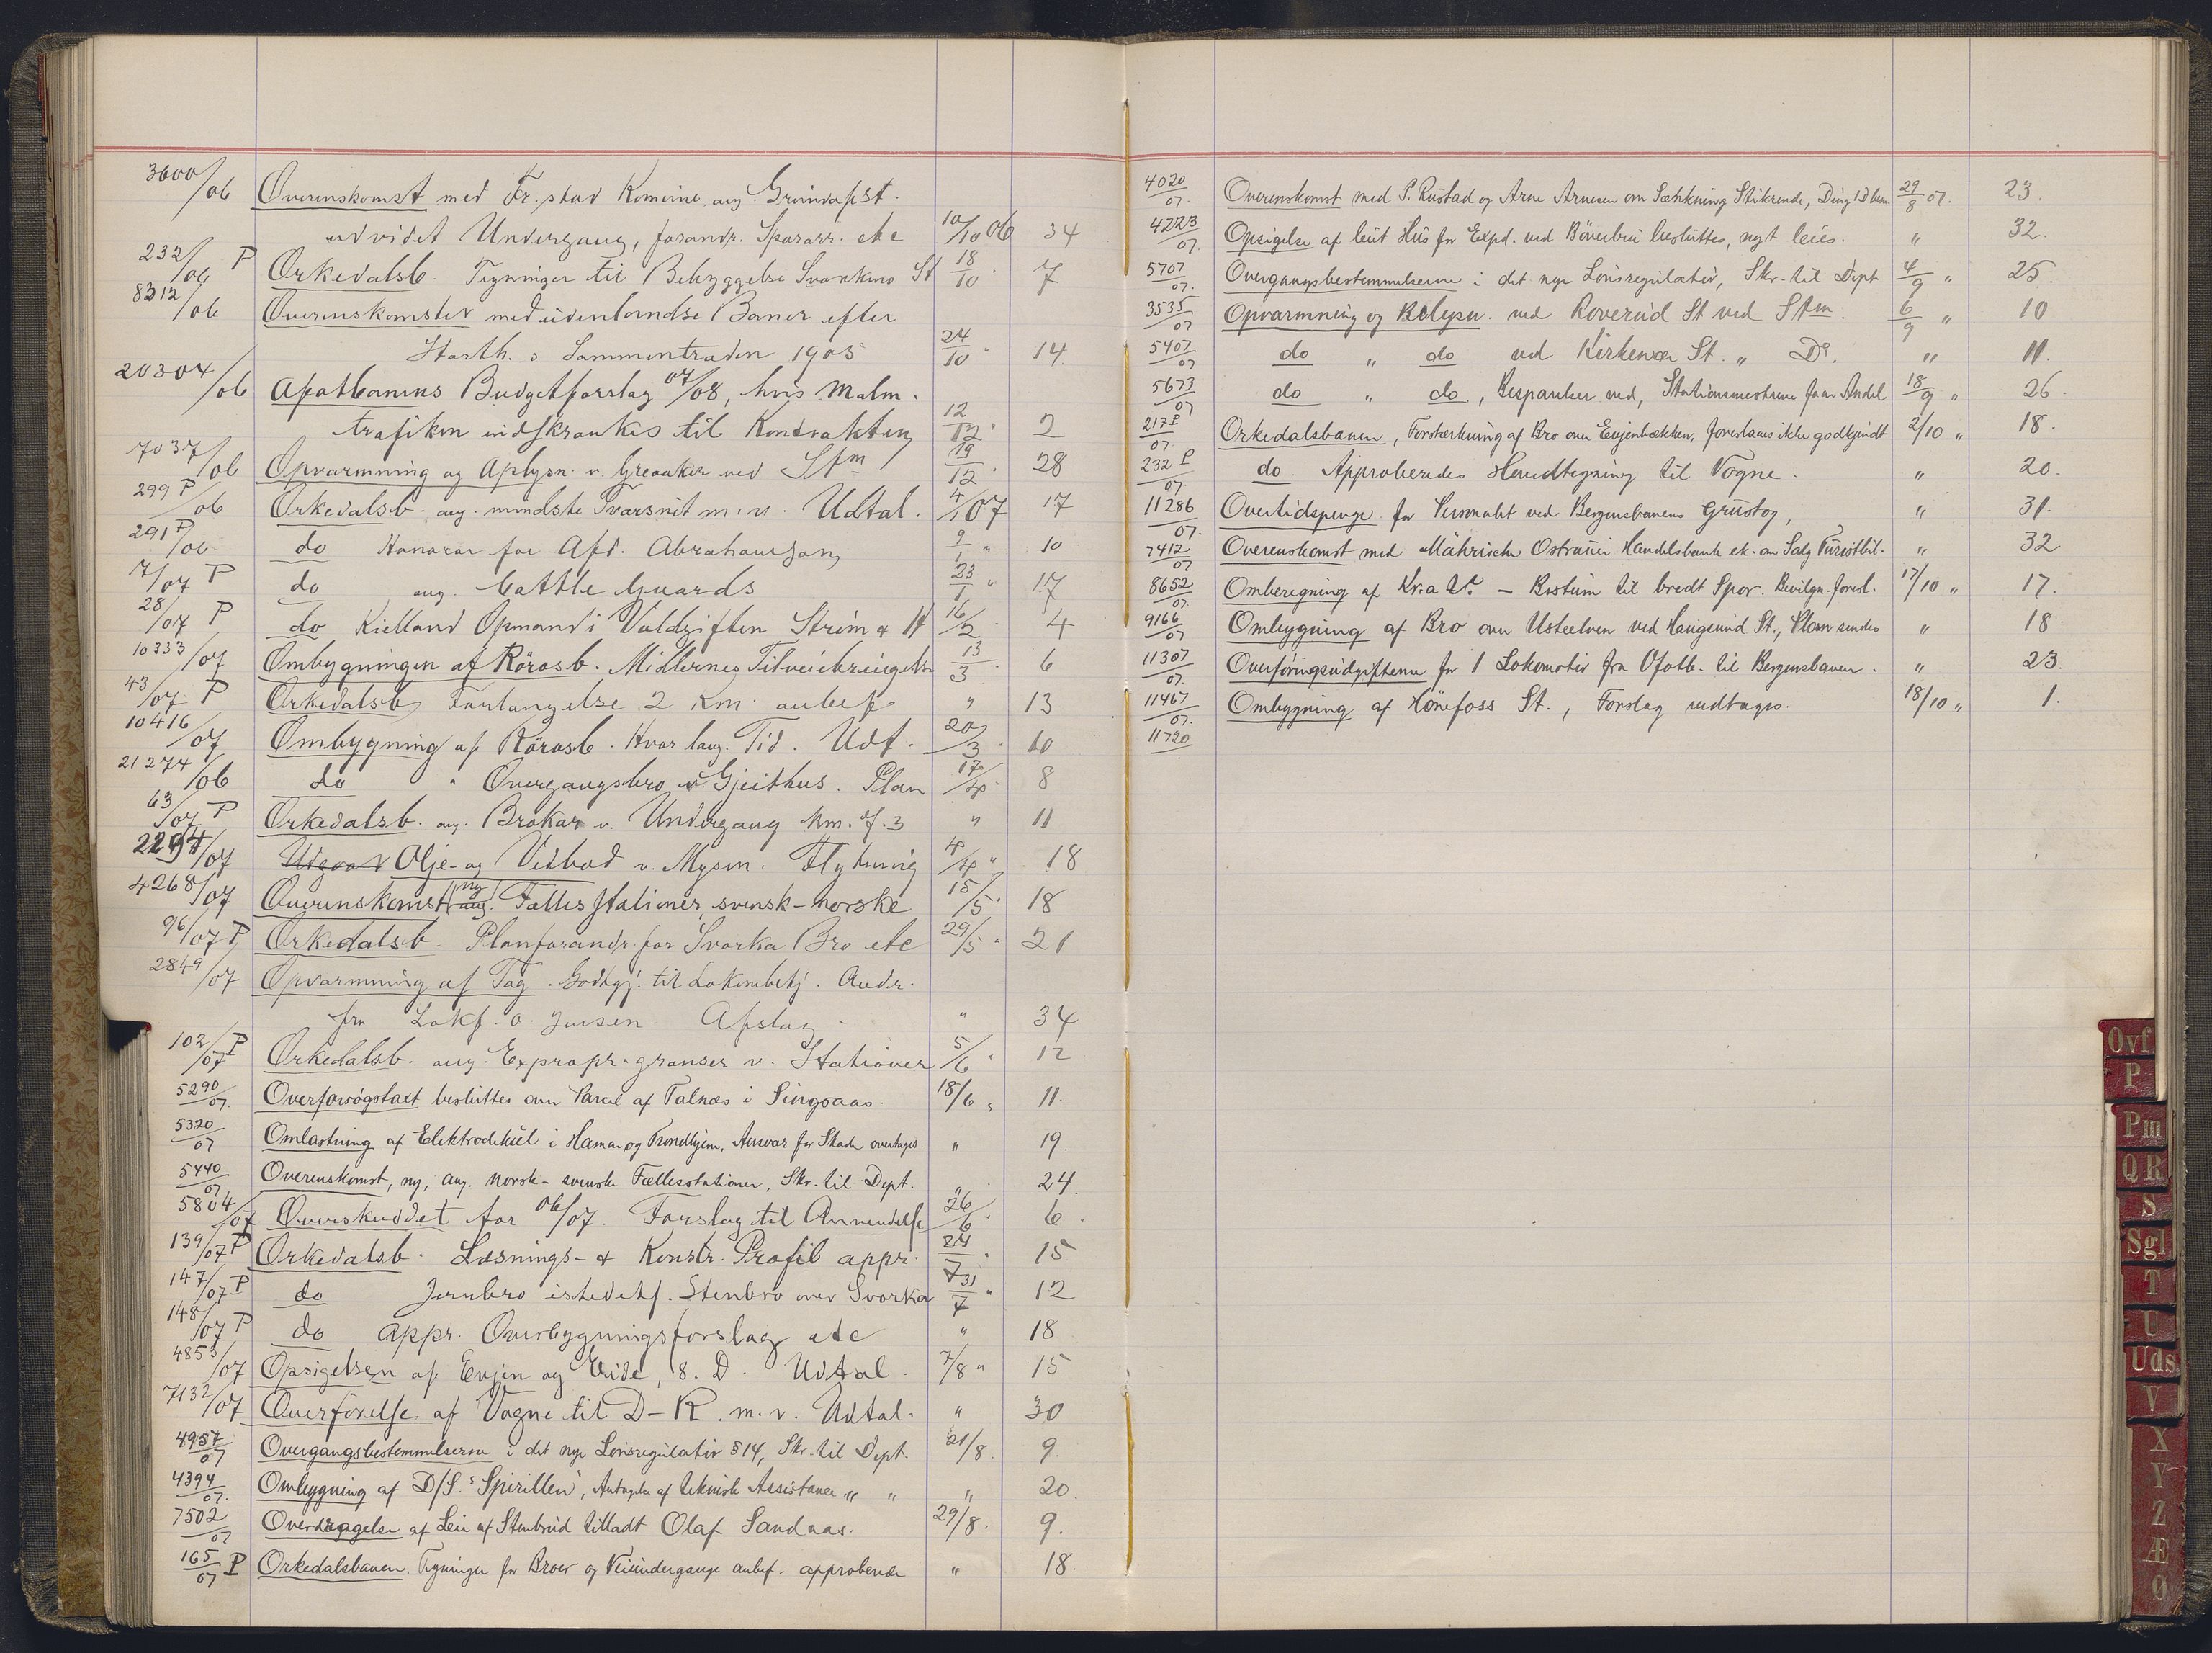 3600/06 Overenskomst med Fr.stad Komune ang. Grindapst.
udvidet Undergang, forandr. Sporarr. etc 10/10 06 34
232/06 P Orkedalsb. Tegninger til Bebyggelse Svorkmo St 18/10 " 7
8312/06 Overenskomster med udenlandse Baner efter
Starth. s Sammentræden 1905 24/10 " 14
20304/06 Ofotbanens Budgetforslag 07/08, hvis Malm-
trafiken indskrænkes til Kontrakten 12/12 " 2
7037/06 Opvarmning og Oplysn. v. Greaaker ved Stm 19/12 " 28
299 P/06 Orkedalsb. ang. mindste Tværsnit m.v. Udtal. 4/1 07 17
291 P/06 do Honorar for Afd. Abrahamsen 9/1 " 10
7/07 P do ang. Cattle Guards 23/1 " 17
28/07 P do Kielland Opmand i Voldgiften Strøm & H 16/2 " 4
10333/07 Ombygningen af Rørosb. Midlernes Tilveiebringelse 13/3 " 6
43/07 P Orkedalsb. Forlængelse 2 Km. anbef. " 13
10416/07 Ombygning af Rørosb. Hvor lang Tid. Udt. 20/3 " 10
21274/06 do " Overgangsbro v. Gjeithus. Plan 17/4 " 8
63/07 P Orkedalsb. ang. Brokar v. Undergang Km. 7.3 " 11
2297/07 Olje- og Vedbod v. Mysen. Flytning 4/4 " 18
4268/07 Overenskomst ny ang. Fællesstationer, svensk-norske 15/5 " 18
96/07 P Orkedalsb. Planforandr. for Svorka Bro etc 29/5 " 21
2849/07 Opvarmning af Tog. Godtgj. til Lokombetj. Andr.
fra Lokf. O. Jensen. Afslag " 34
102/07 P Orkedalsb. ang. Expropr.grænser v. Stationer 5/6 " 12
5290/07. besluttes over Parcel af Talnæs i Singsaas. 18/6 " 11.
5320/07 Omlastning af Elektrodekul i Hamar og Trondhjem, Ansvar for Skade overtages " 19.
5440/07 Overenskomst, ny, ang. norsk-svenske Fællesstationer, Skr. til Dept. " 24.
5804/07 Overskuddet for 06/07. Forslag til Anvendelse 26/6 " 6.
139/07 P Orkedalsb. Læsnings- & Konstr. Profil appr. 24/7 " 15
147/07 P do Jernbro istedetf. Stenbro over Svorka 31/7 " 12
148/07 P do appr. Overbygningsforslag etc " 18
4853/07 Opsigelsen af Evjen og Eide, 8. D. Udtal. 7/8 " 15
7132/07 Overførelse af Vogne til D-R. m.v. Udtal. " 30
4957/07 Overgangsbestemmelserne i det nye Lønsregulativ §14, Skr. til Dept. 21/8. 9.
4394/07. Ombygning af D/S. "Spirillen", Antagelse af teknisk Assistance " " " 20.
7502/07 Overdragelse af Leie af Stenbrud tilladt Olaf Sandaas. 29/8. 9.
165/07 P Orkedalsbanen. Tegninger for Broer og Veiundergange anbef. approberede " 18.
4020/07. Overenskomst med P. Rustad og Arne Arnesen om Sænkning Stikrende, 29/8 07. 23.
4223/07. Opsigelse af leiet Hus for Expd. ved Bøverbru besluttes, nyt leies. " 32.
5707/07. Overgangsbestemmelserne i det nye Lønsregulativ, Skr. til Dept 4/9 " 25.
3535/07 Opvarmning og Belysn. ved Roverud St ved Stm. 6/9 " 10
5407/07 do " do ved Kirkenær St. " Do. " 11.
5673/07 do " do, Besparelser ved, Stationsmestrene faar Andel 18/9 " 26.
217 P/07. Orkedalsbanen, Forstærkning af Bro over Evjenbækken, foreslaaes ikke godkjendt 2/10 " 18.
232 P/07. do. Approberedes Hovedtegning til Vogne. " 20.
11286/07. Overtidspenge for Personalet ved Bergensbanens Grustog, " 31.
7412/07 Overenskomst med Mährische Ostrauer Handelsbank ek. om Salg Turistbil. " 32
8652/07. Omberegning af Kr.a V. – Bustum til bredt Spor. Bevilgn. foresl. 17/10 " 17.
9166/07 Ombygning af Bro over Usteelven ved Haugsund St., Plan sendes " 18
11307/07. Overføringsudgifterne for 1 Lokomotiv fra Ofotb. til Bergensbanen. " 23.
11467/07. Ombygning af Hønefoss St., Forslag vedtages. 18/10 " 1.
11720
Ovf
P
Pm
Q R
S
Sgl
T
U
Uds
V
X
Y
Z
Æ
Ø